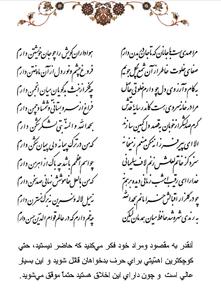 مرا عهدیست با جانان که تا جان در بدن دارم هواداران کویش را چو جان خویشتن دارم
صفای خلوت خاطر از آن شمع چگل جویم فروغ چشم و نور دل از آن ماه ختن دارم
به کام و آرزوی دل چو دارم خلوتی حاصل چه فکر از خبث بدگویان میان انجمن دارم
مرا در خانه سروی هست کاندر سایه قدش فراغ از سرو بستانی و شمشاد چمن دارم
گرم صد لشکر از خوبان به قصد دل کمین سازند بحمد الله و المنه بتی لشکرشکن دارم
الا ای پیر فرزانه مکن عیبم ز میخانه که من در ترک پیمانه دلی پیمان شکن دارم
سزد کز خاتم لعلش زنم لاف سلیمانی چو اسم اعظمم باشد چه باک از اهرمن دارم
خدا را ای رقیب امشب زمانی دیده بر هم نه که من با لعل خاموشش نهانی صد سخن دارم
چو در گلزار اقبالش خرامانم بحمدالله نه میل لاله و نسرین نه برگ نسترن دارم
به رندی شهره شد حافظ میان همدمان لیکن چه غم دارم که در عالم قوام الدین حسن دارم
آنقدر به مقصود ومراد خود فکر می‌کنید که حاضر نیستید، حتی
کوچکترین اهمیتی برای حرف بدخواهان قائل شوید و این بسیار
عالی است و چون دارای این اخلاق هستید حتماً موفق می‌شوید.